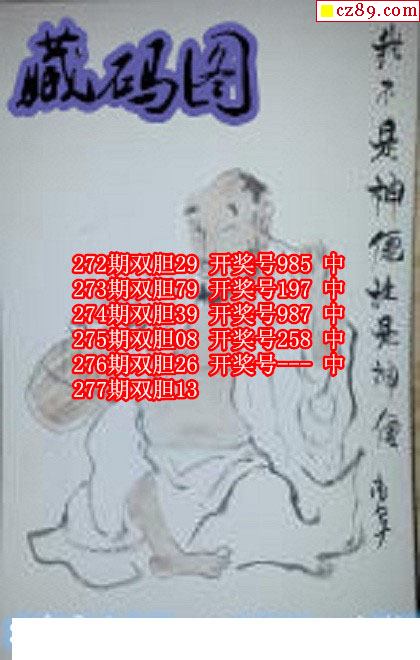 cz89.com
藏码图
我不是神僊谁是神僊
272期双胆29 开奖号985 中
273期双胆79 开奖号197 中
274期双胆39 开奖号987 中
275期双胆08 开奖号258 中
276期双胆26 开奖号--- 中
277期双胆13